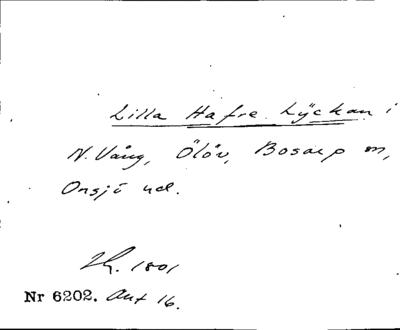 Lilla Hafre Lyckan i
N. Vång, Ölöv, Bosarp sn,
Onsjö hd.
Lh. 1801
Nr 6202. Akt 16.